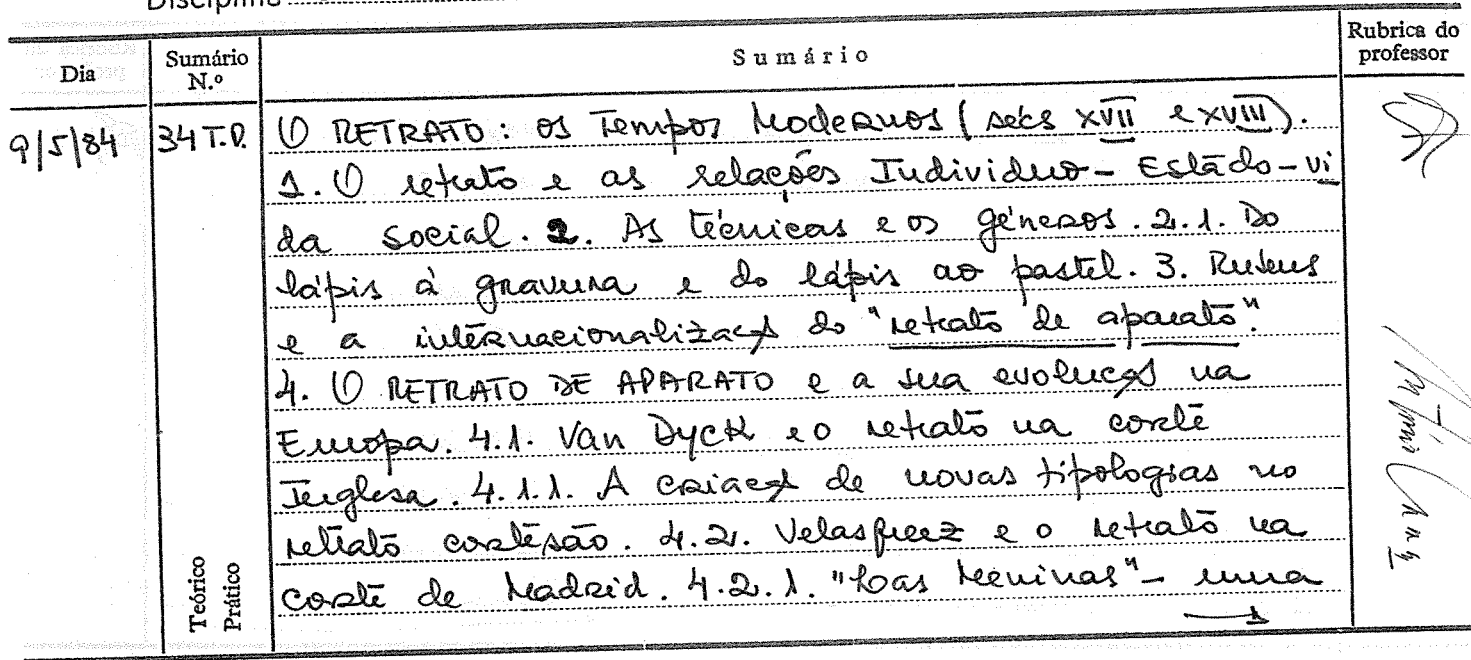 Disciplina
Dia
Sumário N.º
Sumário
Rubrica do professor
9/5/84
34 T.P.
O RETRATO: os Tempos Modernos (secs XVII e XVIII).
1. O retrato e as relações Indivíduo - Estado - vi
da social. 2. As técnicas e os géneros. 2.1. Do
lápis à gravura e do lápis ao pastel. 3. Rubens
e a internacionalização do "retrato de aparato".
4. O RETRATO DE APARATO e a sua evolução na
Europa. 4.1. Van Dyck e o retrato na corte
Inglesa. 4.1.1. A criação de novas tipologias no
retrato cortesão. 4.2. Velasquez e o retrato na
corte de Madrid. 4.2.1. "Las Meninas" - uma
Teórico
Prático